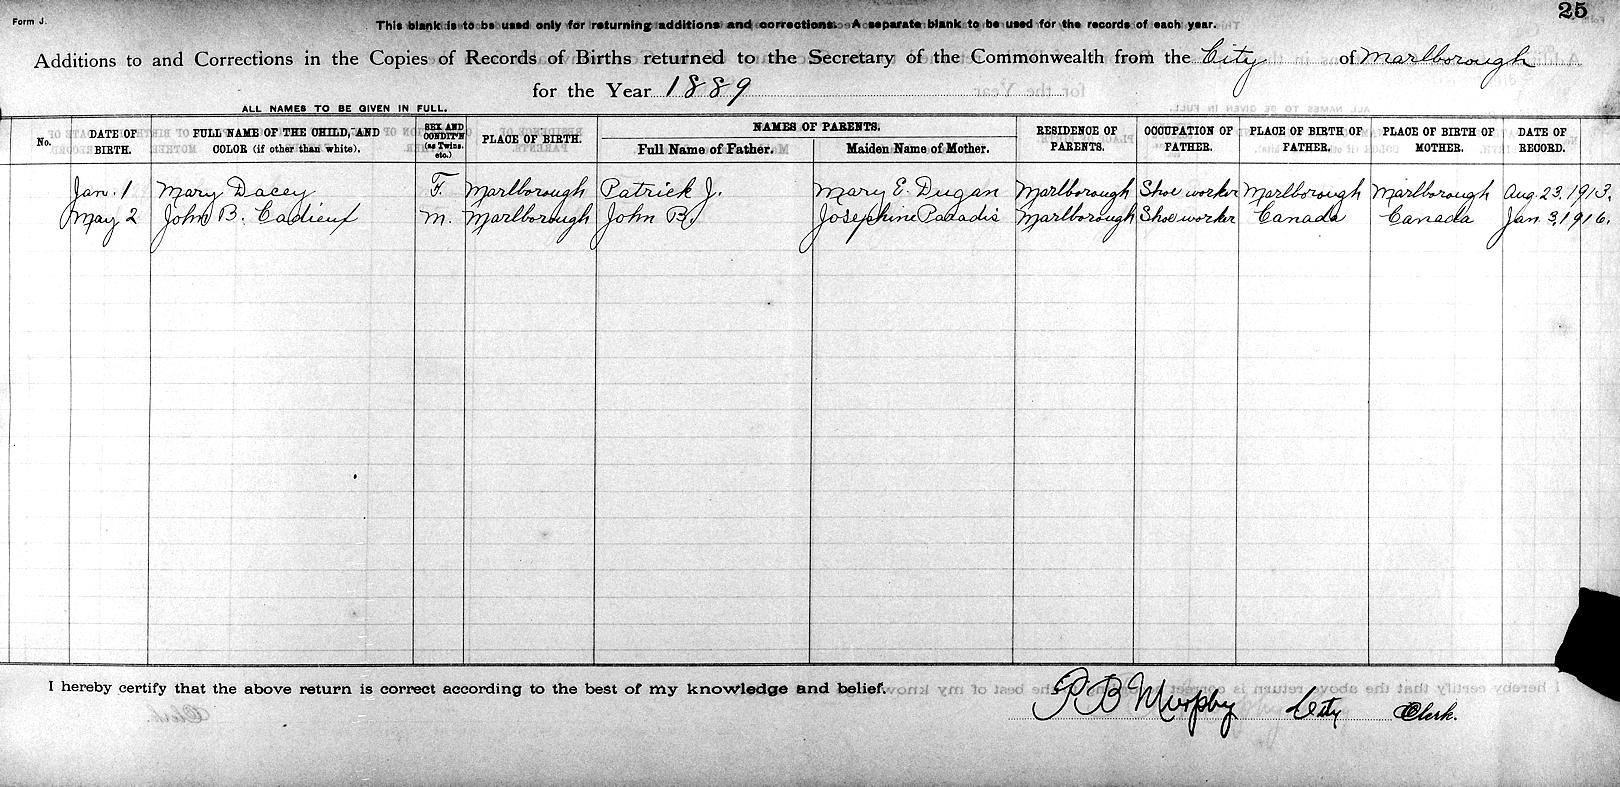 Form J.
25
This blank is to be used only for returning additions and corrections. A separate blank to be used for the records of each year.
Additions to and Corrections in the Copies of Records of Births returned to the Secretary of the Commonwealth from the City of Marlborough
for the Year 1889
ALL NAMES TO BE GIVEN IN FULL.
No. DATE OF BIRTH. FULL NAME OF THE CHILD, AND COLOR (if other than white). SEX AND CONDIT'N (as Twins, etc.) PLACE OF BIRTH. NAMES OF PARENTS. Full Name of Father. Maiden Name of Mother. RESIDENCE OF PARENTS. OCCUPATION OF FATHER. PLACE OF BIRTH OF FATHER. PLACE OF BIRTH OF MOTHER. DATE OF RECORD.
Jan. 1 Mary Dacey F. Marlborough Patrick J. Mary E. Dugan Marlborough Shoe worker Marlborough Marlborough Aug. 23, 1913.
May 2 John B. Cadieux M. Marlborough John B. Josephine Paradis Marlborough Shoe worker Canada Canada Jan. 3, 1916.
I hereby certify that the above return is correct according to the best of my knowledge and belief.
P B Murphy City Clerk.